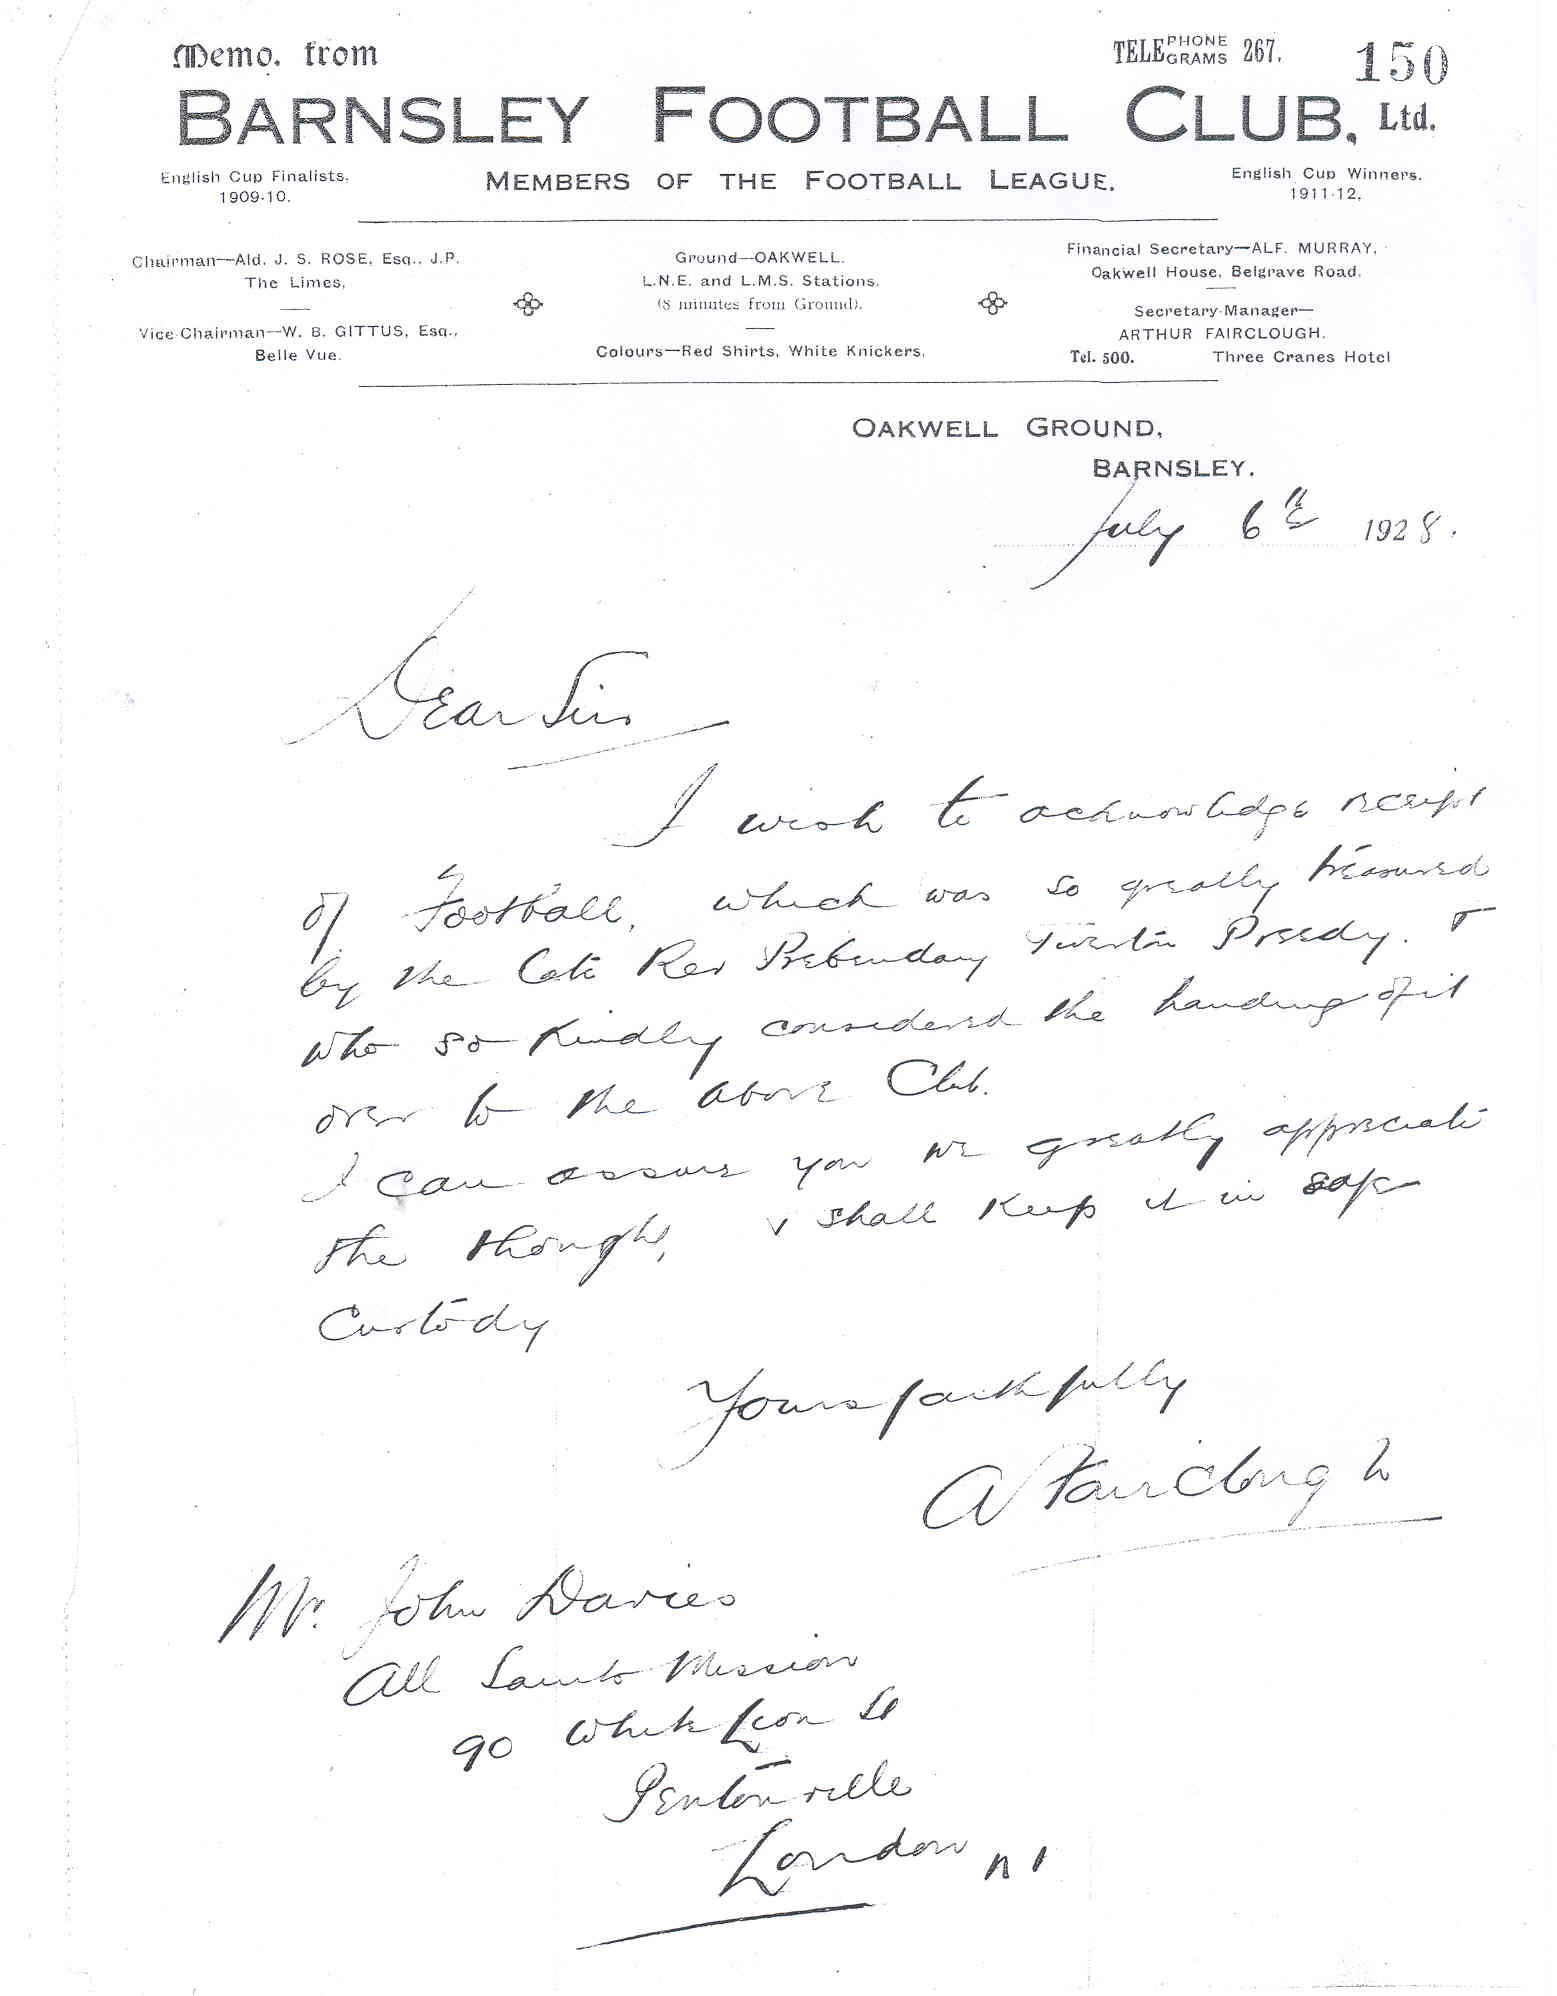 Memo. from
TELEPHONE GRAMS 267.
150
BARNSLEY FOOTBALL CLUB, Ltd.
English Cup Finalists.
1909-10.
MEMBERS OF THE FOOTBALL LEAGUE.
English Cup Winners.
1911-12.
Chairman—Ald. J. S. ROSE, Esq., J.P.
The Limes.
Vice-Chairman—W. B. GITTUS, Esq.,
Belle Vue.
Ground—OAKWELL.
L.N.E. and L.M.S. Stations.
(8 minutes from Ground).
Colours—Red Shirts, White Knickers.
Financial Secretary—ALF. MURRAY.
Oakwell House, Belgrave Road.
Secretary-Manager—
ARTHUR FAIRCLOUGH.
Tel. 500. Three Cranes Hotel
OAKWELL GROUND,
BARNSLEY.
July 6th 1928.
Dear Sir
I wish to acknowledge receipt
of Football, which was so greatly treasured
by the late Rev Prebendary Tiverton Preedy. &
who so kindly considered the handing of it
over to the above Club.
I can assure you we greatly appreciate
the thought, & shall keep it in safe
Custody
Yours faithfully
A Fairclough
Mr. John Davies
All Saints Mission
90 White Lion St
Pentonville
London N1